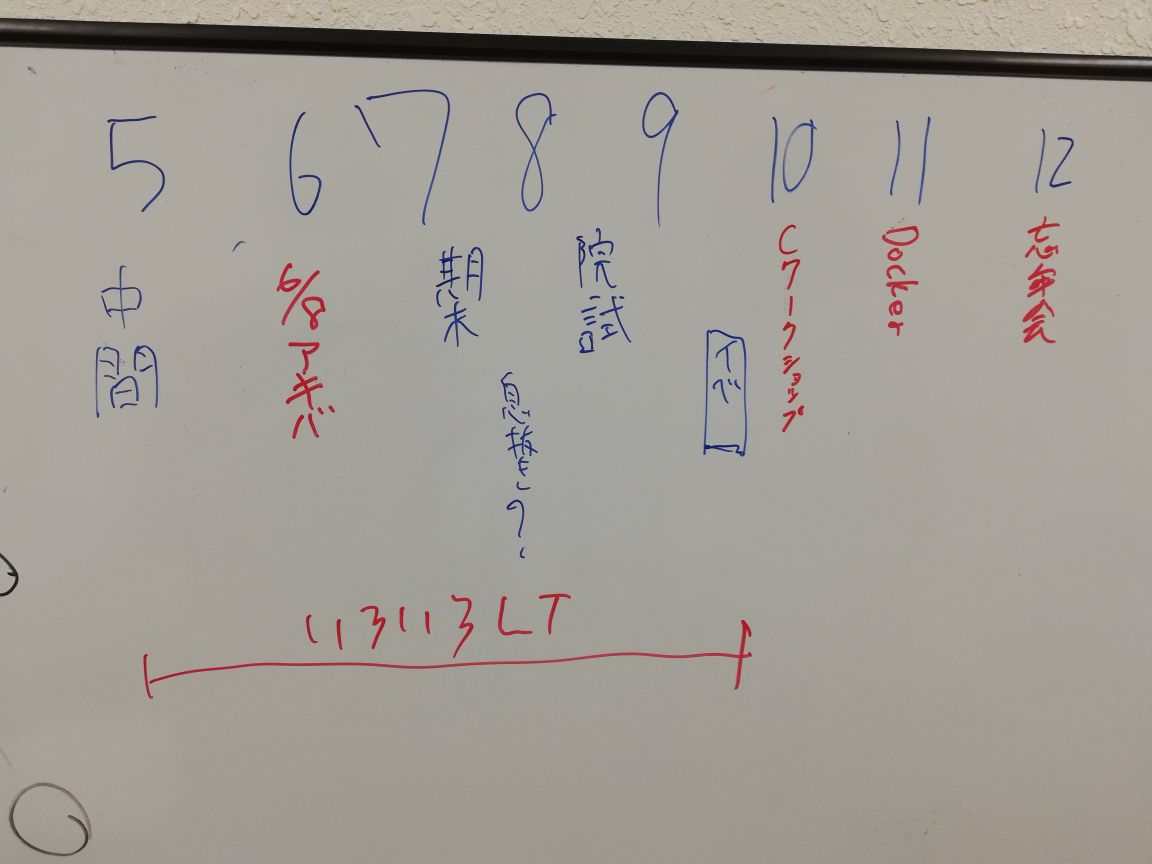 5 6 7 8 9 10 11 12
中間
6/8アキバ
期末
息抜き?
院試
イベ
Cワークショップ
Docker
忘年会
いろいろLT